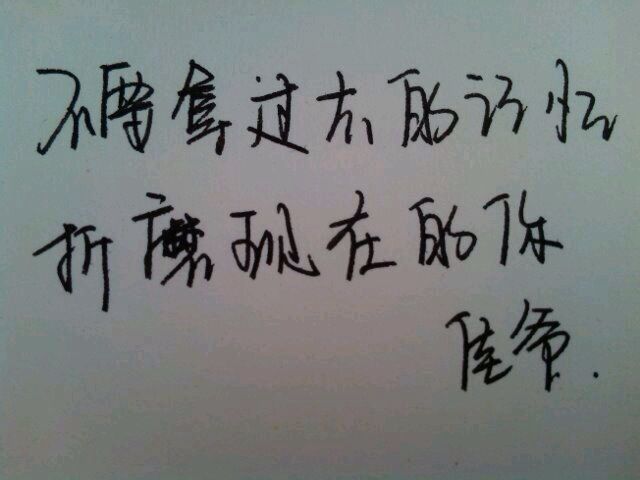 不要拿过去的记忆
折磨现在的你
佳爷.